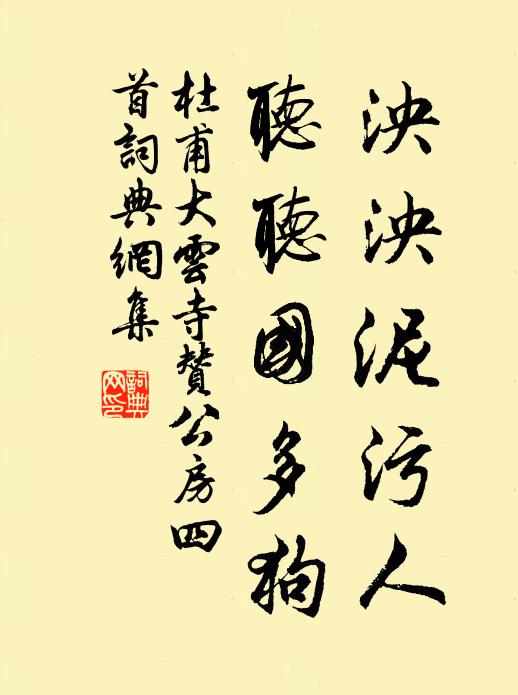 泱泱泥污人
聽聽國多狗
杜甫大雲寺贊公房四
首詞典網集
詞典
网印